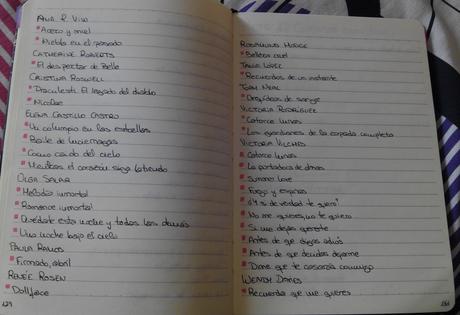 ANA R. VIVO
Acero y miel
Niebla en el pasado
CATHERINE ROBERTS
El despertar de Belle
CRISTINA ROSWELL
Draculesti. El legado del diablo
Nicolae
ELENA CASTILLO CASTRO
Un columpio en las estrellas
Baile de luciérnagas
Como caído del cielo
Mientras el corazón siga latiendo
OLGA SALAR
Melodía inmortal
Romance inmortal
Quédate esta noche y todas las demás
Una noche bajo el cielo
PAULA RAMOS
Firmado, abril
RENEÉ ROSEN
Dollface
129
Belleza cruel
TANIA LÓPEZ
Recuerdos de un instante
Orquídeas de sangre
VICTORIA RODRÍGUEZ
Catorce lunas
Los guardianes de la espada completa
VICTORIA VÍLCHEZ
Catorce lunas
La portadora de almas
Summer love
Fuego y espinas
¿Y si de verdad te quiero?
No me quieres, no te quiero
Si me dejas quererte
Antes de que digas adiós
Antes de que decidas dejarme
Dime que te casarás conmigo
WENDY DAVIES
Recuerda que me quieres